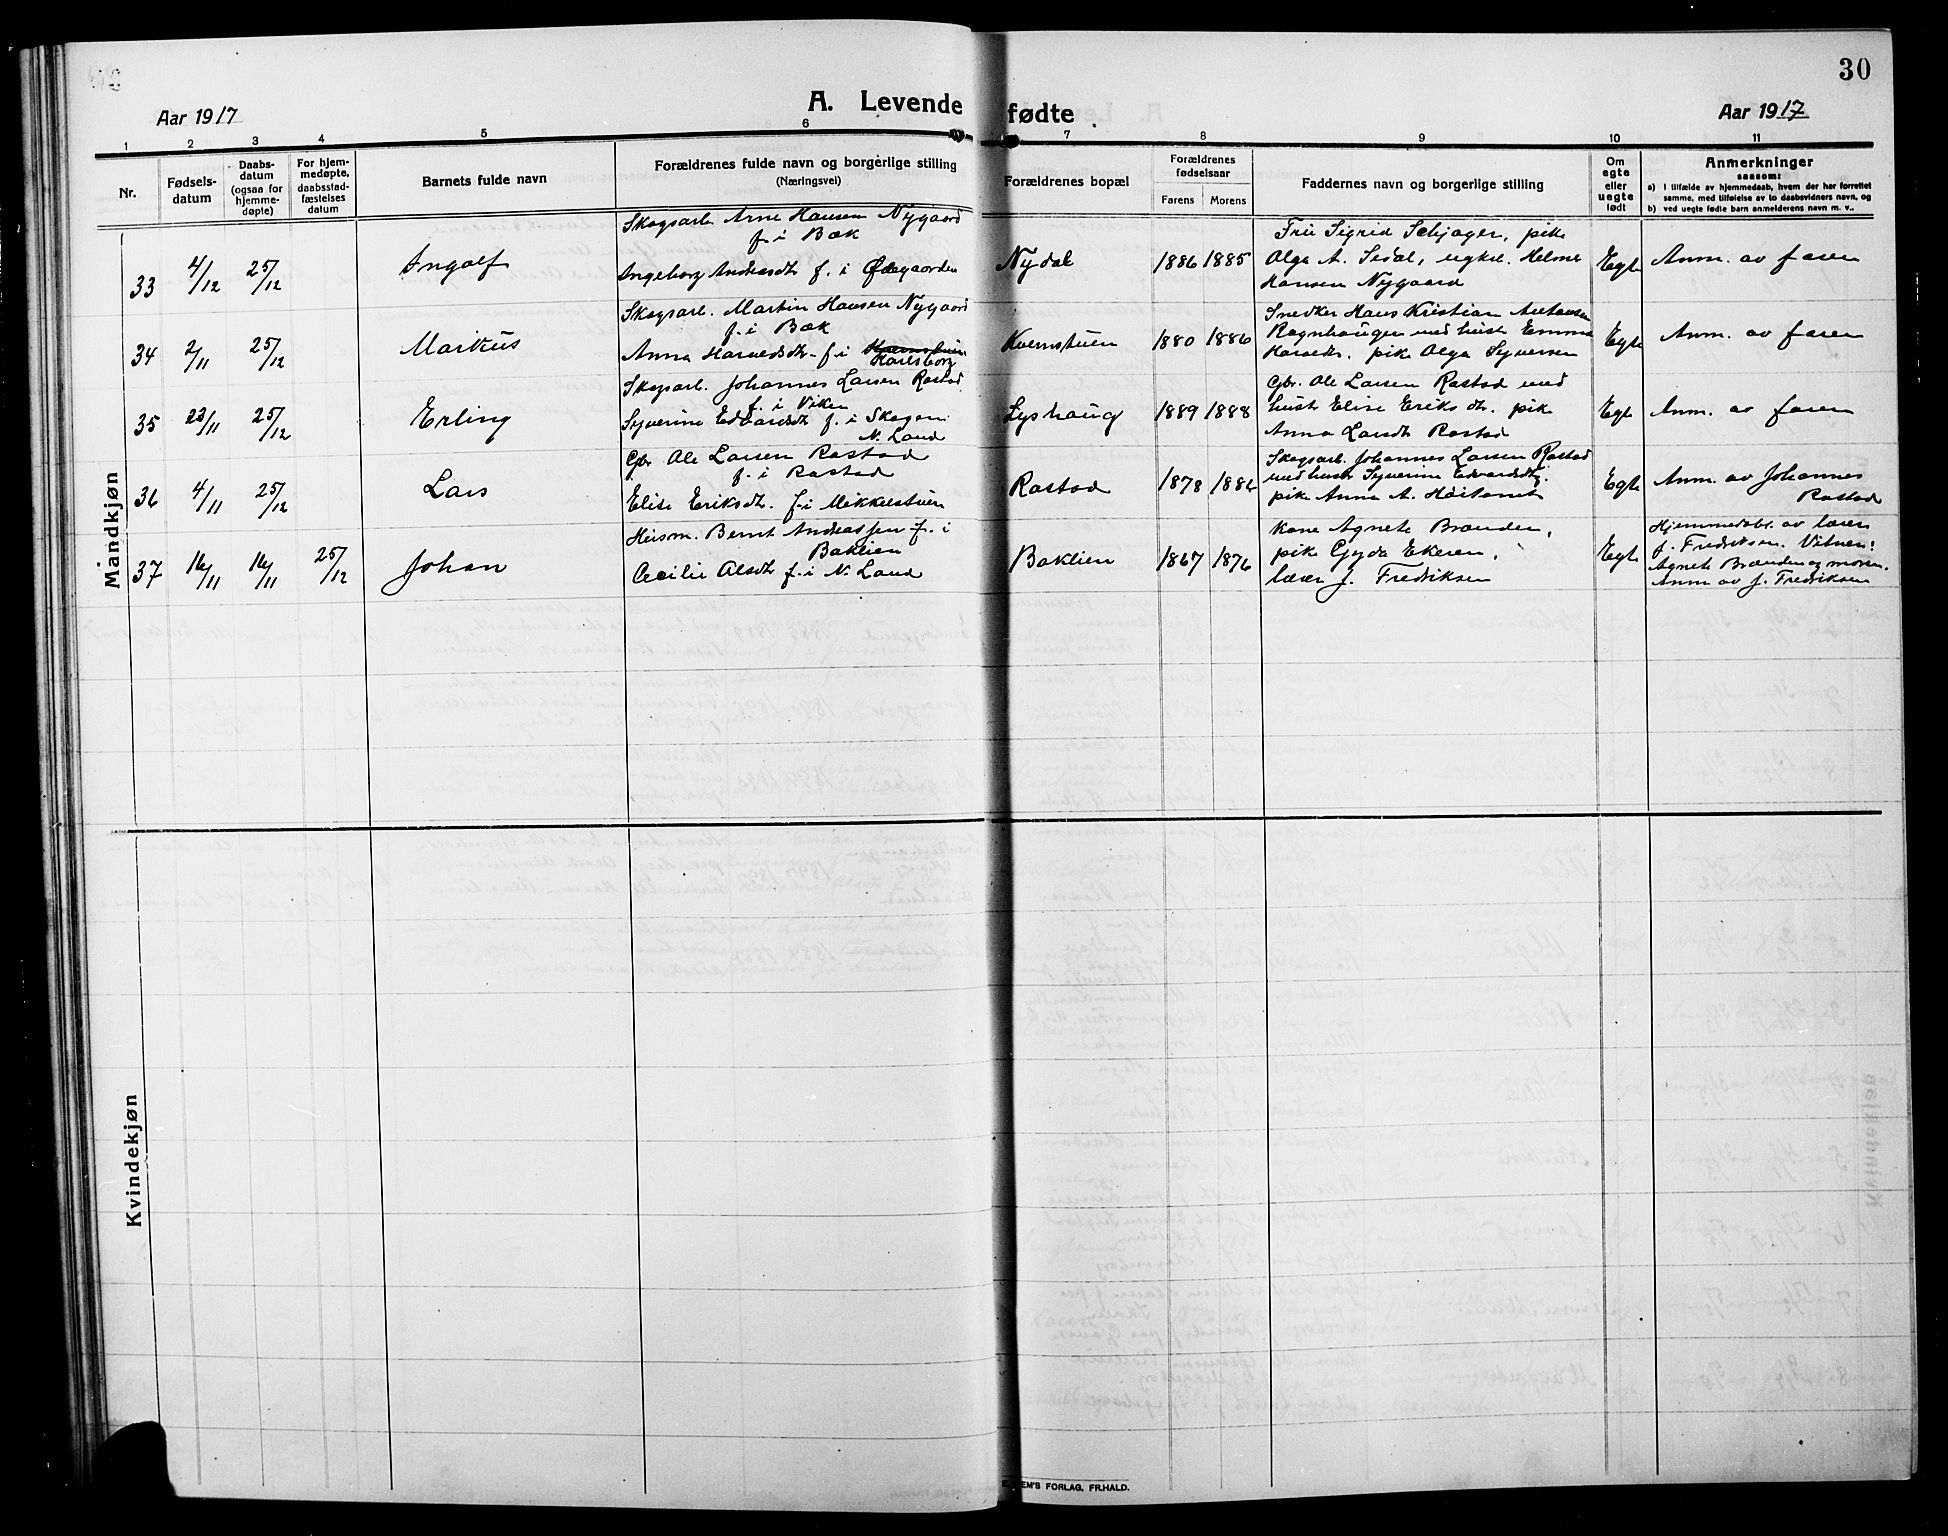 30
A. Levende fødte.
Aar 1917
Aar 1917
1 2 3 4 5 6 7 8 9 10 11
Nr.
Fødsels-
datum
Daabs-
datum
(ogsaa for
hjemme-
døpte)
For hjem-
medøpte,
daabsstad-
fæstelses
datum
Barnets fulde navn
Forældrenes fulde navn og borgerlige stilling
(Næringsvei)
Forældrenes bopæl
Forældrenes
fødselsaar
Farens Morens
Faddernes navn og borgerlige stilling
Om
egte
eller
uegte
født
Anmerkninger
saasom:
a) i tilfælde av hjemmedaab, hvem der har forrettet
samme, med tilføielse av to daabsvidners navn, og
b) ved uegte fødte barn anmelderens navn m. v..
Mandkjøn
33 4/12 25/12 Ingolf
Skogsarb. Arne Hansen Nygaard
f. i Bæk
Ingeborg Andreasdtr f. i Ødegaarden
Nydal 1886 1885
Fru Sigrid Schjager, pike
Olga A. , ugkrl. Helmer
Hansen Nygaard
Egte Anm. av faren
34 2/11 25/12 Markus
Skogsarb. Martin Hansen Nygaard
f. i Bæk
Anna Harvedsdtr. f. i Kvernstuen
Karlsborg
Kvernstuen 1880 1886
Snedker Hans Kristian Antonsen
Ragnhaugen med hustr Emma
pike Olga Syversen
Egte Anm. av faren
35 23/11 25/12 Erling
Skogsarb. Johannes Larsen Rastad
f. i Viken
Syverine Edvardsdtr f. i Skogen
N. Land
Lyshaug 1889 1888
Gbr. Ole Larsen Rastad med
hustr Elise Eriksdtr. pike
Anna Larsdtr Rastad
Egte Anm. av faren
36 4/11 25/12 Lars
Gbr Ole Larsen Rastad
f. i Rastad
Elise Eriksdtr. f. i Mikkelstuen
Rastad 1878 1886
Skogsarb. Johannes Larsen Rastad
med hustr Syverine Edvardsdtr.
pike Anna A.
Egte Anm. av Johannes
Rastad
37 16/11 16/11 25/12 Johan
Husm. Bernt Andreassen f. i
Baklien
Cecilie Olsdtr f. i N. Land
Baklien 1867 1876
kone Agnete Brænden,
pike Gyda Ekeren,
lærer J. Fredriksen
Egte
Hjemmedøbt av lærer
J. Fredriksen. Vitner:
Agnete Brænden og moren.
Anm av J. Fredriksen
Kvindekjøn
EM'S FORLAG, FR.HALD.